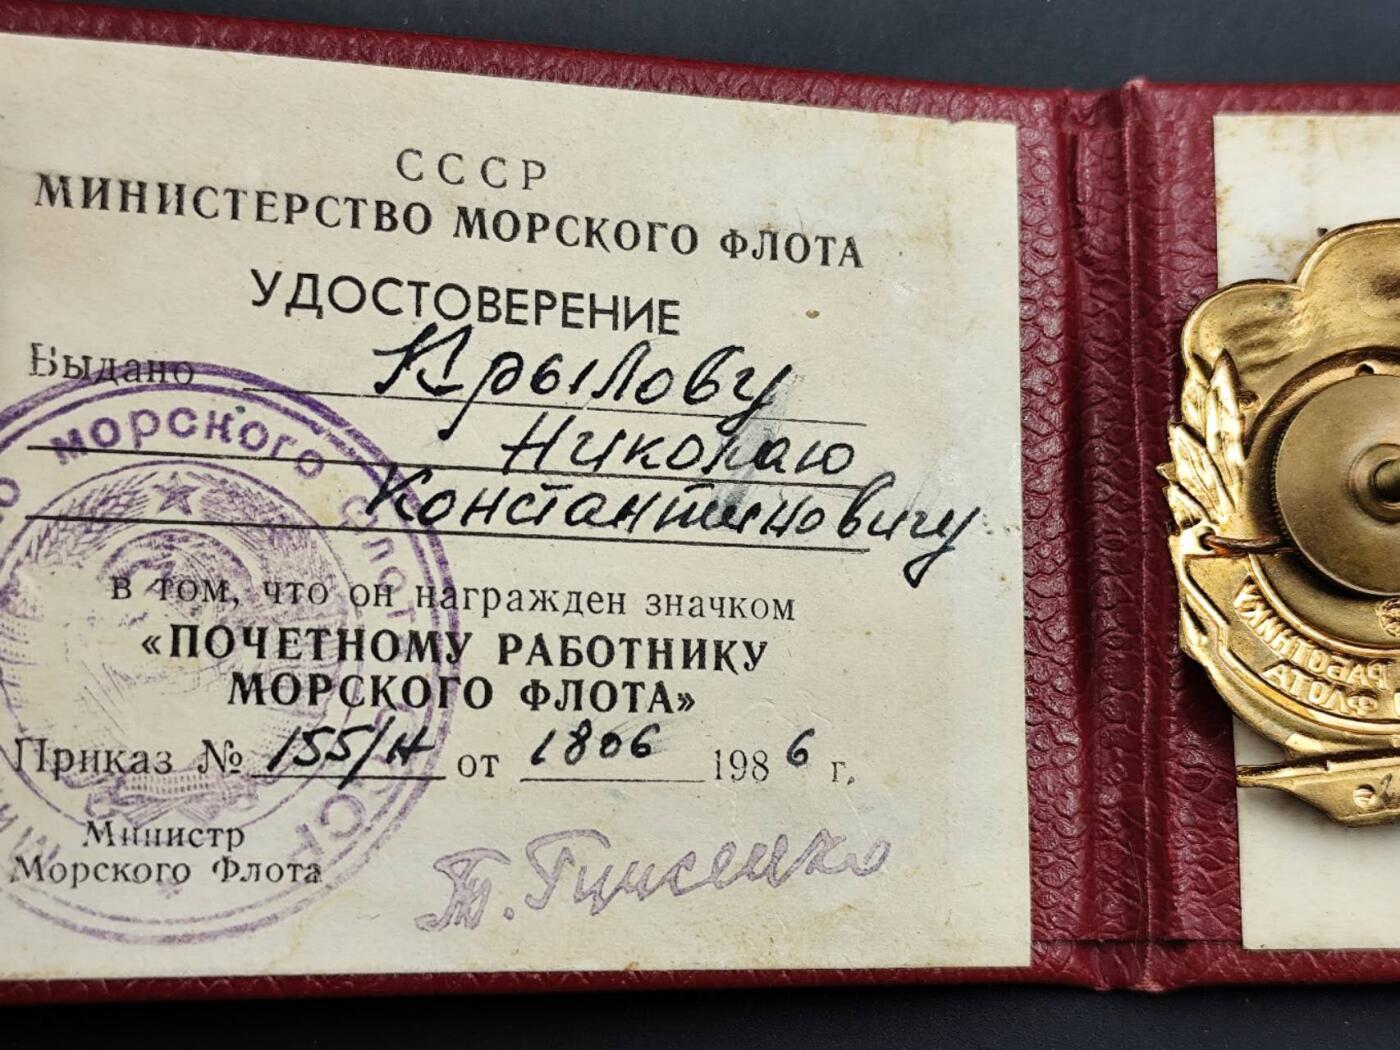 СССР
МИНИСТЕРСТВО МОРСКОГО ФЛОТА
УДОСТОВЕРЕНИЕ
Выдано Крылову
Николаю
Константиновичу
в том, что он награжден значком
«ПОЧЕТНОМУ РАБОТНИКУ
МОРСКОГО ФЛОТА»
Приказ № 155/Н от 1806 1986 г.
Министр
Морского Флота
Т. Гуженко
МОРСКОГО ФЛОТА СССР
РАБОТНИКУ
ФЛОТА